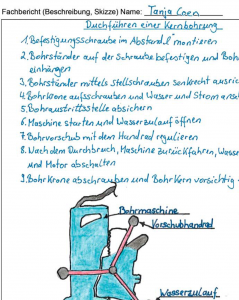 Fachbericht (Beschreibung, Skizze) Name: Tanja Coen
Duchführen einer Kernbohrung
1. Befestigungsschraube im Abstand "l" montieren
2. Bohrständer auf der Schraube befestigen und Boh
einhängen
3. Bohrständer mittels Stellschrauben senkrecht ausric
4. Bohrkrone aufsschrauben und Wasser und Strom ansc
5. Bohraustrittsstelle absichern
6. Maschine starten und Wasserzulauf öffnen
7. Bohrvorschub mit dem Handrad regulieren
8. Nach dem Durchbruch, Maschine zurückfahren, Wasse
und Motor abschalten
9. Bohrkrone abschrauben und Bohrkern vorsichtig
Bohrmaschine
Vorschubhandrad
Wasserzulauf